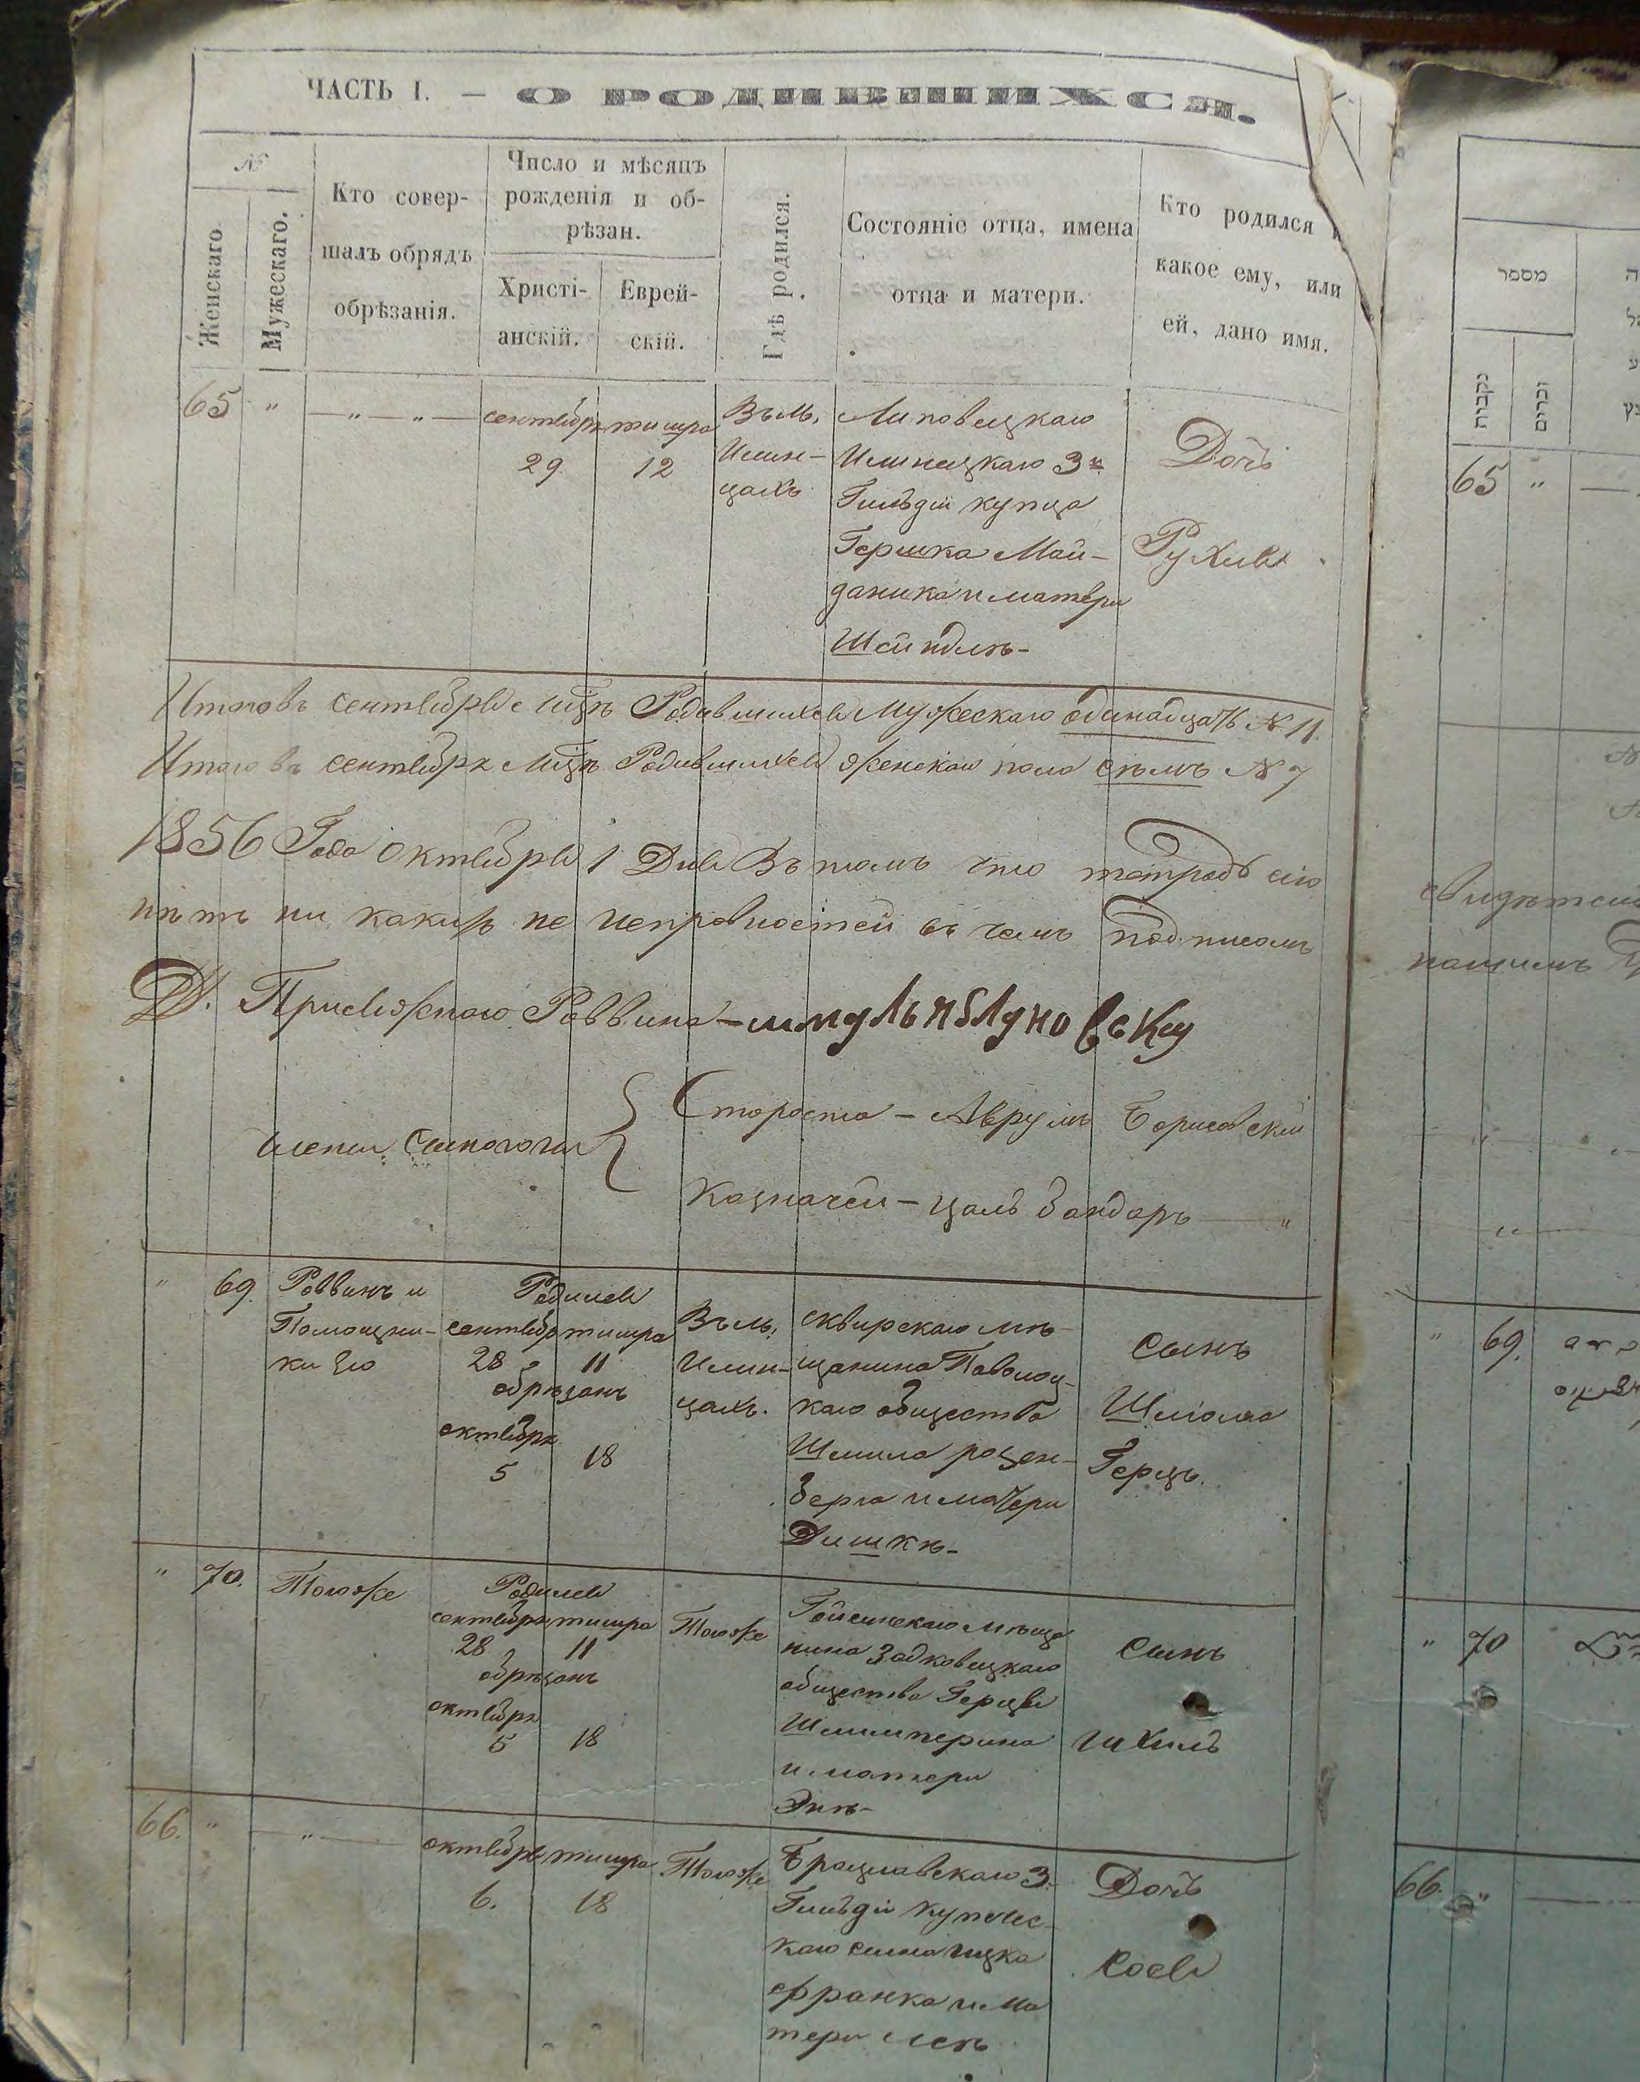 ЧАСТЬ I. — О РОДИВШИХСЯ.
№
Женскаго
Мужескаго.
Кто совер-
шалъ обрядъ
обрѣзанія.
Число и мѣсяцъ
рожденія и об-
рѣзан.
Христі-
анскій.
Еврей-
скій.
Гдѣ родился.
Состояніе отца, имена
отца и матери.
Кто родился и
какое ему, или
ей, дано имя.
65 " — " — " —
сентября
29
тишра
12
Въ м.
Илин-
цахъ
Липовецкаго
Илинецкаго 3й
Гильдіи купца
Гершка Май-
даника и матери
Шейндлѣ-
Дочь
Рухля
Итого въ сентябрѣ мцѣ Родившихся мужескаго одинадцать № 11.
Итого въ сентябрѣ мцѣ Родившихся женскаго пола семь № 7
1856 Года октября 1 Дня Въ томъ что тетрадь сію
нѣтъ ни какихъ не исправностей въ чемъ подписомъ
Д. Присяжнаго Раввина – шмуль яблуновську
члени Синагоги
Староста – Аврумъ Борисовскій
Казначей – Цаль Зандаръ — "
" 69.
Раввинъ и
Помощни-
ки Его
Родился
сентября тишра
28 11
обрѣзанъ
октября
5 18
Въ м.
Илин-
цахъ.
сквирскаго мѣ-
щанина Паволоц-
каго общества
Шмила розен-
берга и матери
Дишкѣ-
Сынъ
Шлiома
Герцъ.
" 70.
Тогоже
Родился
сентября тишра
28 11
обрѣзанъ
октября
5 18
Тогоже
Гайсинскаго мѣща
нина Задковецкаго
общества Герця
и матери
Энѣ-
Сынъ
Ихиль
66. " — " —
октября тишра
6. 18
Тогоже
Брацлавскаго 3.
Гильдіи купчес-
каго сына ицка
франка и ма
тери леѣ
Дочь
Сося
מספר
נקבות
זכרים
65 " —
" 69.
" 70
66. " —